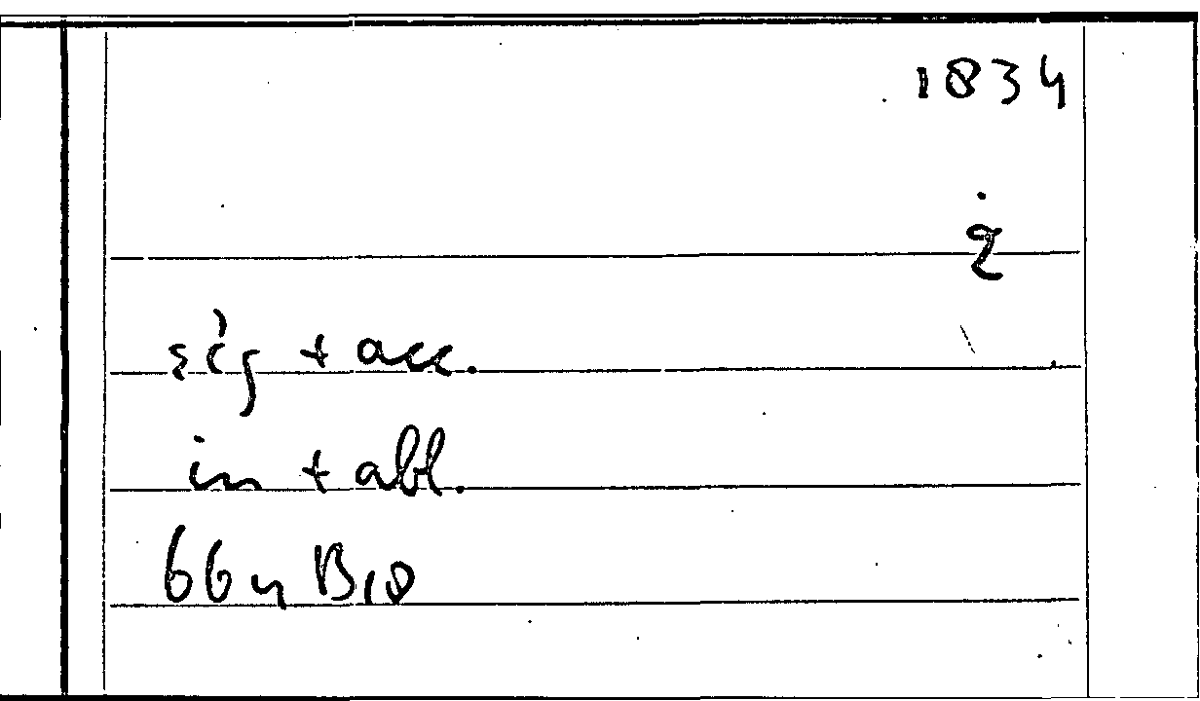 1834
εἰς + acc.
in + abl.
664 B18